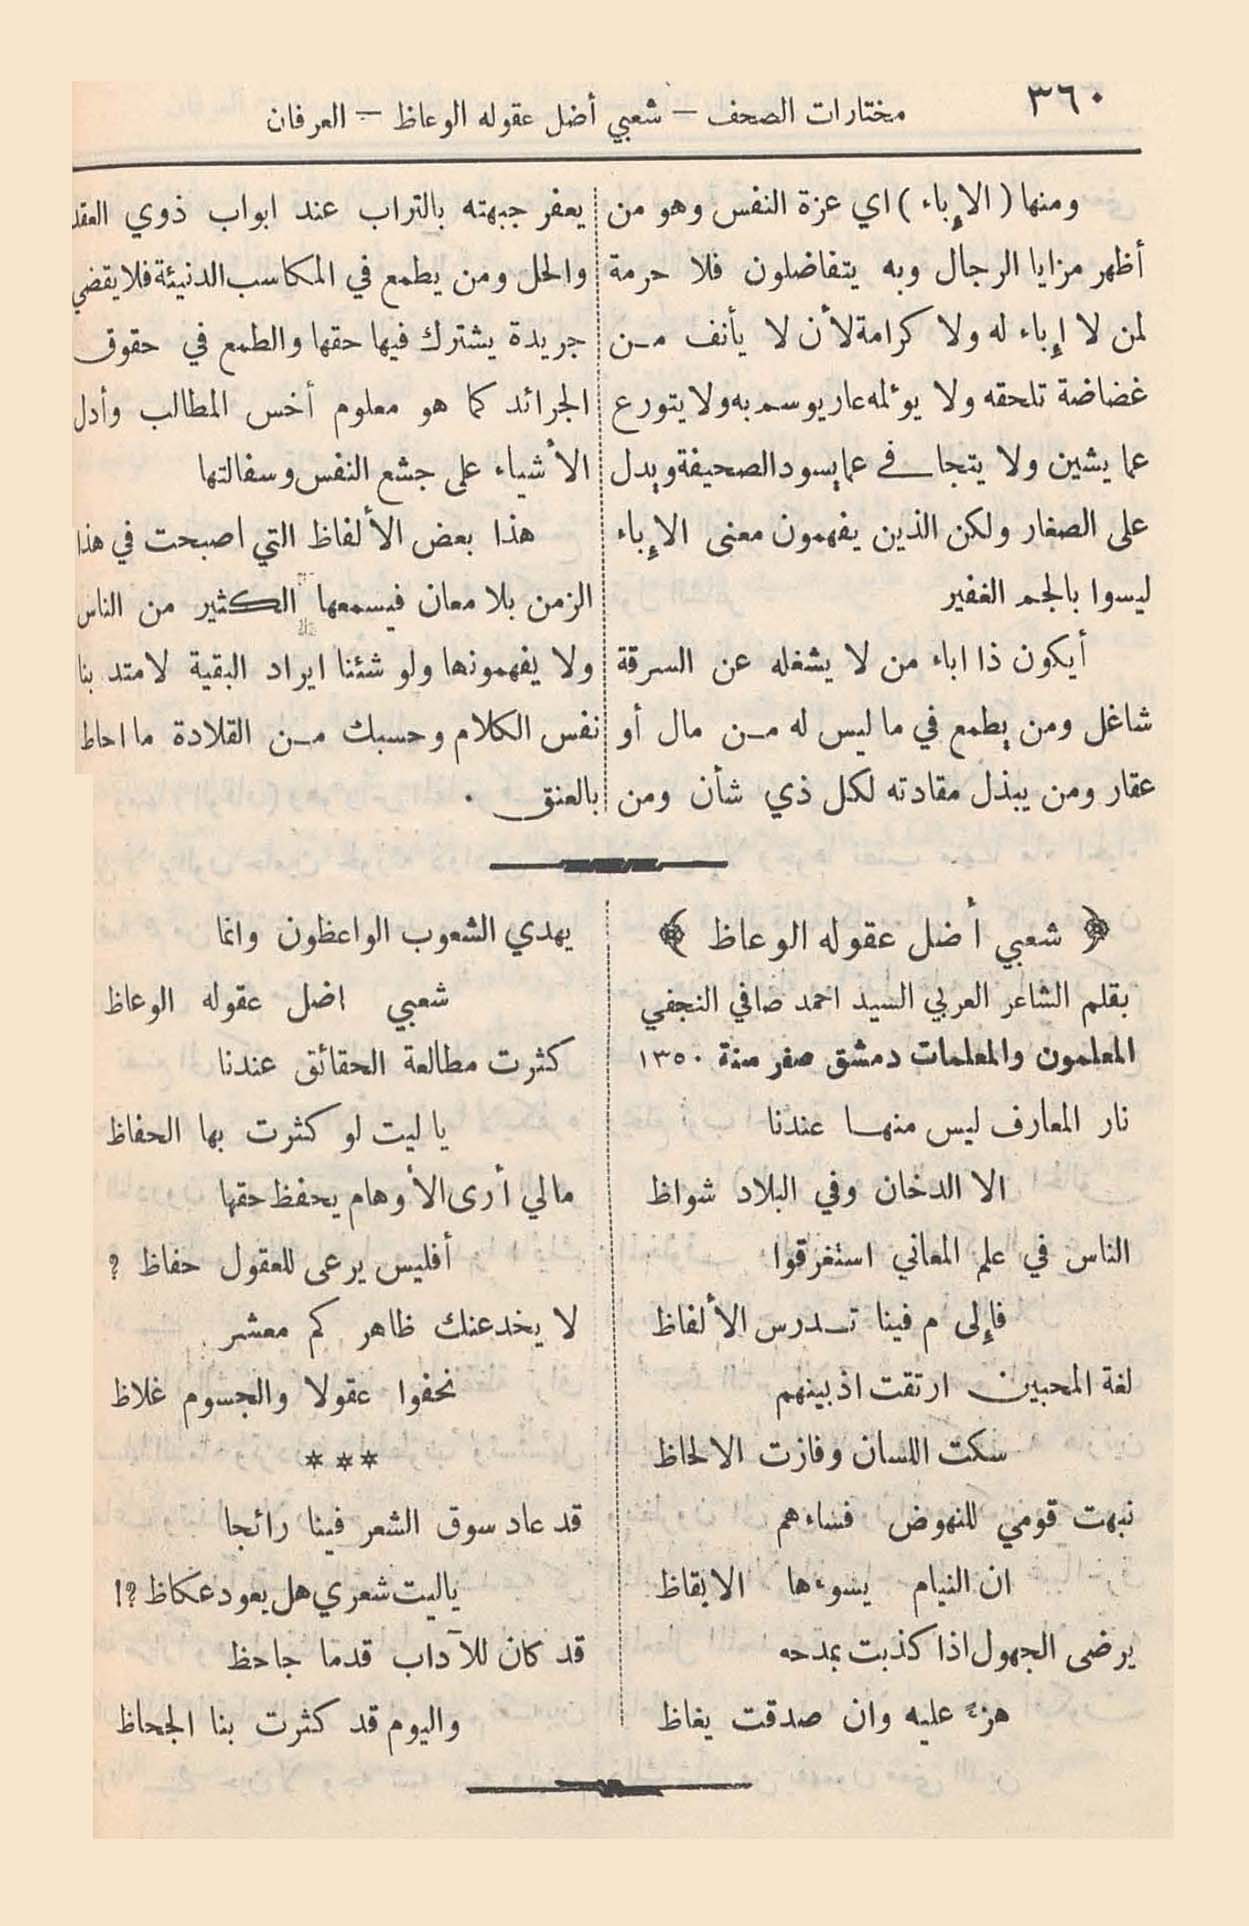 ٣٦٠
مختارات الصحف – شعبي أضل عقوله الوعاظ – العرفان
ومنها ( الإباء ) اي عزة النفس وهو من
أظهر مزايا الرجال وبه يتفاضلون فلا حرمة
لمن لا إباء له ولا كرامة لأن لا يأنف من
غضاضة تلحقه ولا يؤلمه عار يوسم به ولا يتورع
عما يشين ولا يتجافى عما يسود الصحيفة ويدل
على الصغار ولكن الذين يفهمون معنى الإباء
ليسوا بالجم الغفير
أيكون ذا اباء من لا يشغله عن السرقة
شاغل ومن يطمع في ما ليس له من مال أو
عقار ومن يبذل مقادته لكل ذي شأن ومن
يعفر جبهته بالتراب عند ابواب ذوي العقد
والحل ومن يطمع في المكاسب الدنيئة فلا يقضي
جريدة يشترك فيها حقها والطمع في حقوق
الجرائد كما هو معلوم أخس المطالب وأدل
الأشياء على جشع النفس وسفالتها
هذا بعض الألفاظ التي اصبحت في هذا
الزمن بلا معان فيسمعها الكثير من الناس
ولا يفهمونها ولو شئنا ايراد البقية لامتد بنا
نفس الكلام وحسبك من القلادة ما احاط
بالعنق .
﴿ شعبي أضل عقوله الوعاظ ﴾
بقلم الشاعر العربي السيد احمد صافي النجفي
المعلمون والمعلمات دمشق صفر سنة ١٣٥٠
نار المعارف ليس منها عندنا
الا الدخان وفي البلاد شواظ
الناس في علم المعاني استغرقوا
فإلى م فينا تدرس الألفاظ
لغة المحبين ارتقت اذ بينهم
سكت اللسان وفازت الالحاظ
نبهت قومي للنهوض فساءهم
ان النيام يسوءها الايقاظ
يرضى الجهول اذا كذبت بمدحه
هزءً عليه وان صدقت يغاظ
يهدي الشعوب الواعظون وانما
شعبي اضل عقوله الوعاظ
كثرت مطالعة الحقائق عندنا
يا ليت لو كثرت بها الحفاظ
مالي أرى الأوهام يحفظ حقها
أفليس يرعى للعقول حفاظ ؟
لا يخدعنك ظاهر كم معشر
نحفوا عقولا والجسوم غلاظ
***
قد عاد سوق الشعر فينا رائجا
ياليت شعري هل يعود عكاظ ؟!
قد كان للآداب قدما جاحظ
واليوم قد كثرت بنا الجحاظ